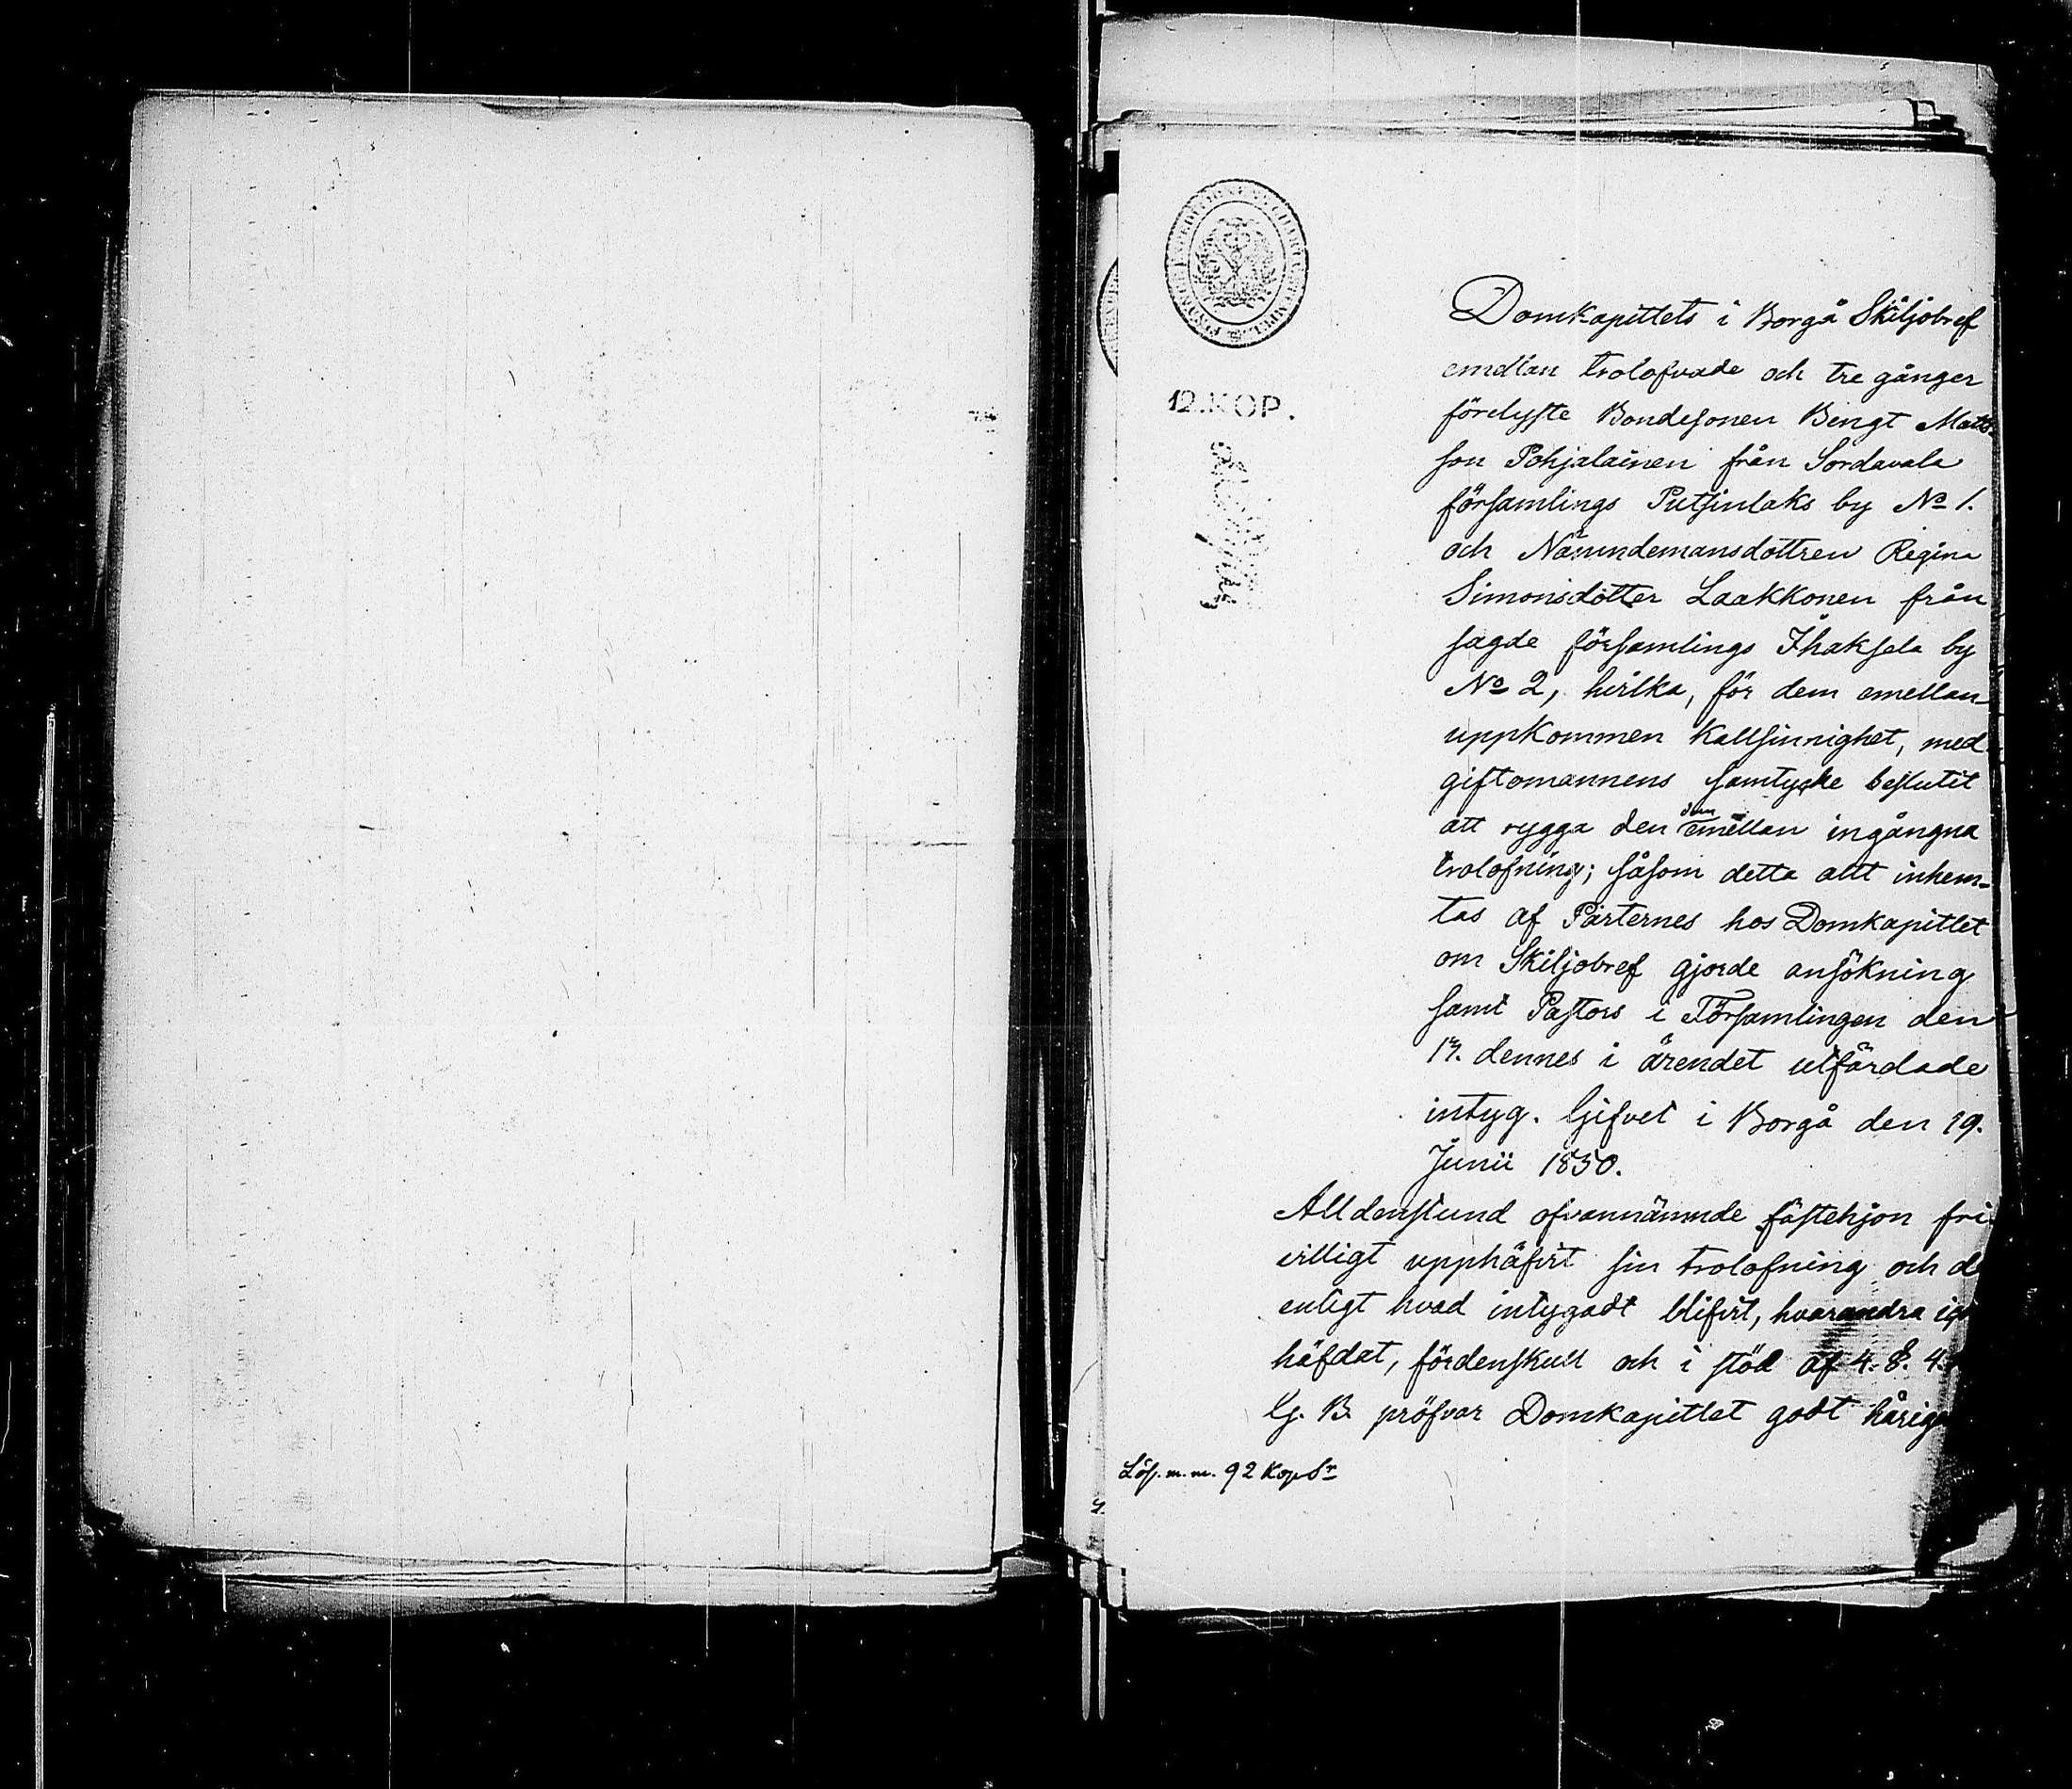 12. KOP.
Domkapitlets i Borgå Skiljobref
emellan trolofvade och tre gånger
förelyste Bondesonen Bengt Matts-
son Pohjalainen från Sordavala
församlings Putsinlaks by No 1.
och Nämndemansdottren Regina
Simonsdotter Laakkonen från
sagde församlings Ihaksela by
No 2, hvilka, för dem emellan
uppkommen kallsinnighet, med
giftomannens samtycke beslutit
att rygga den dem emellan ingångna
trolofning; såsom detta allt inhem-
tas af Parternes hos Domkapitlet
om Skiljobref gjorde ansökning
samt Pastors i Församlingen den
17. dennes i ärendet utfärdade
intyg. Gifvet i Borgå den 19.
Junii 1850.
Alldenstund ofvannämnde fästehjon fri
villigt upphäfvit sin trolofning och d
enligt hvad intygadt blifvit, hvarandra
häfdat, fördenskull och i stöd af 4. §. 4.
G. B. pröfvar Domkapitlet godt
Lös. m. m. 92 Kop Sr